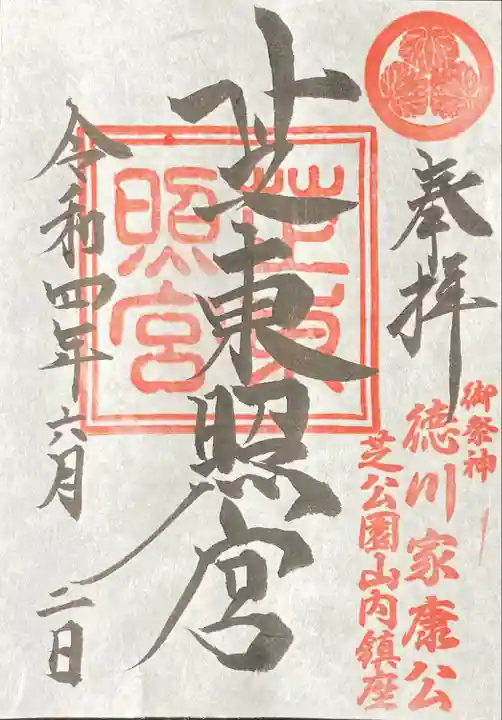 奉拝
御祭神
徳川家康公
芝公園山内鎮座
芝東照宮
芝東
照宮
令和四年六月二日